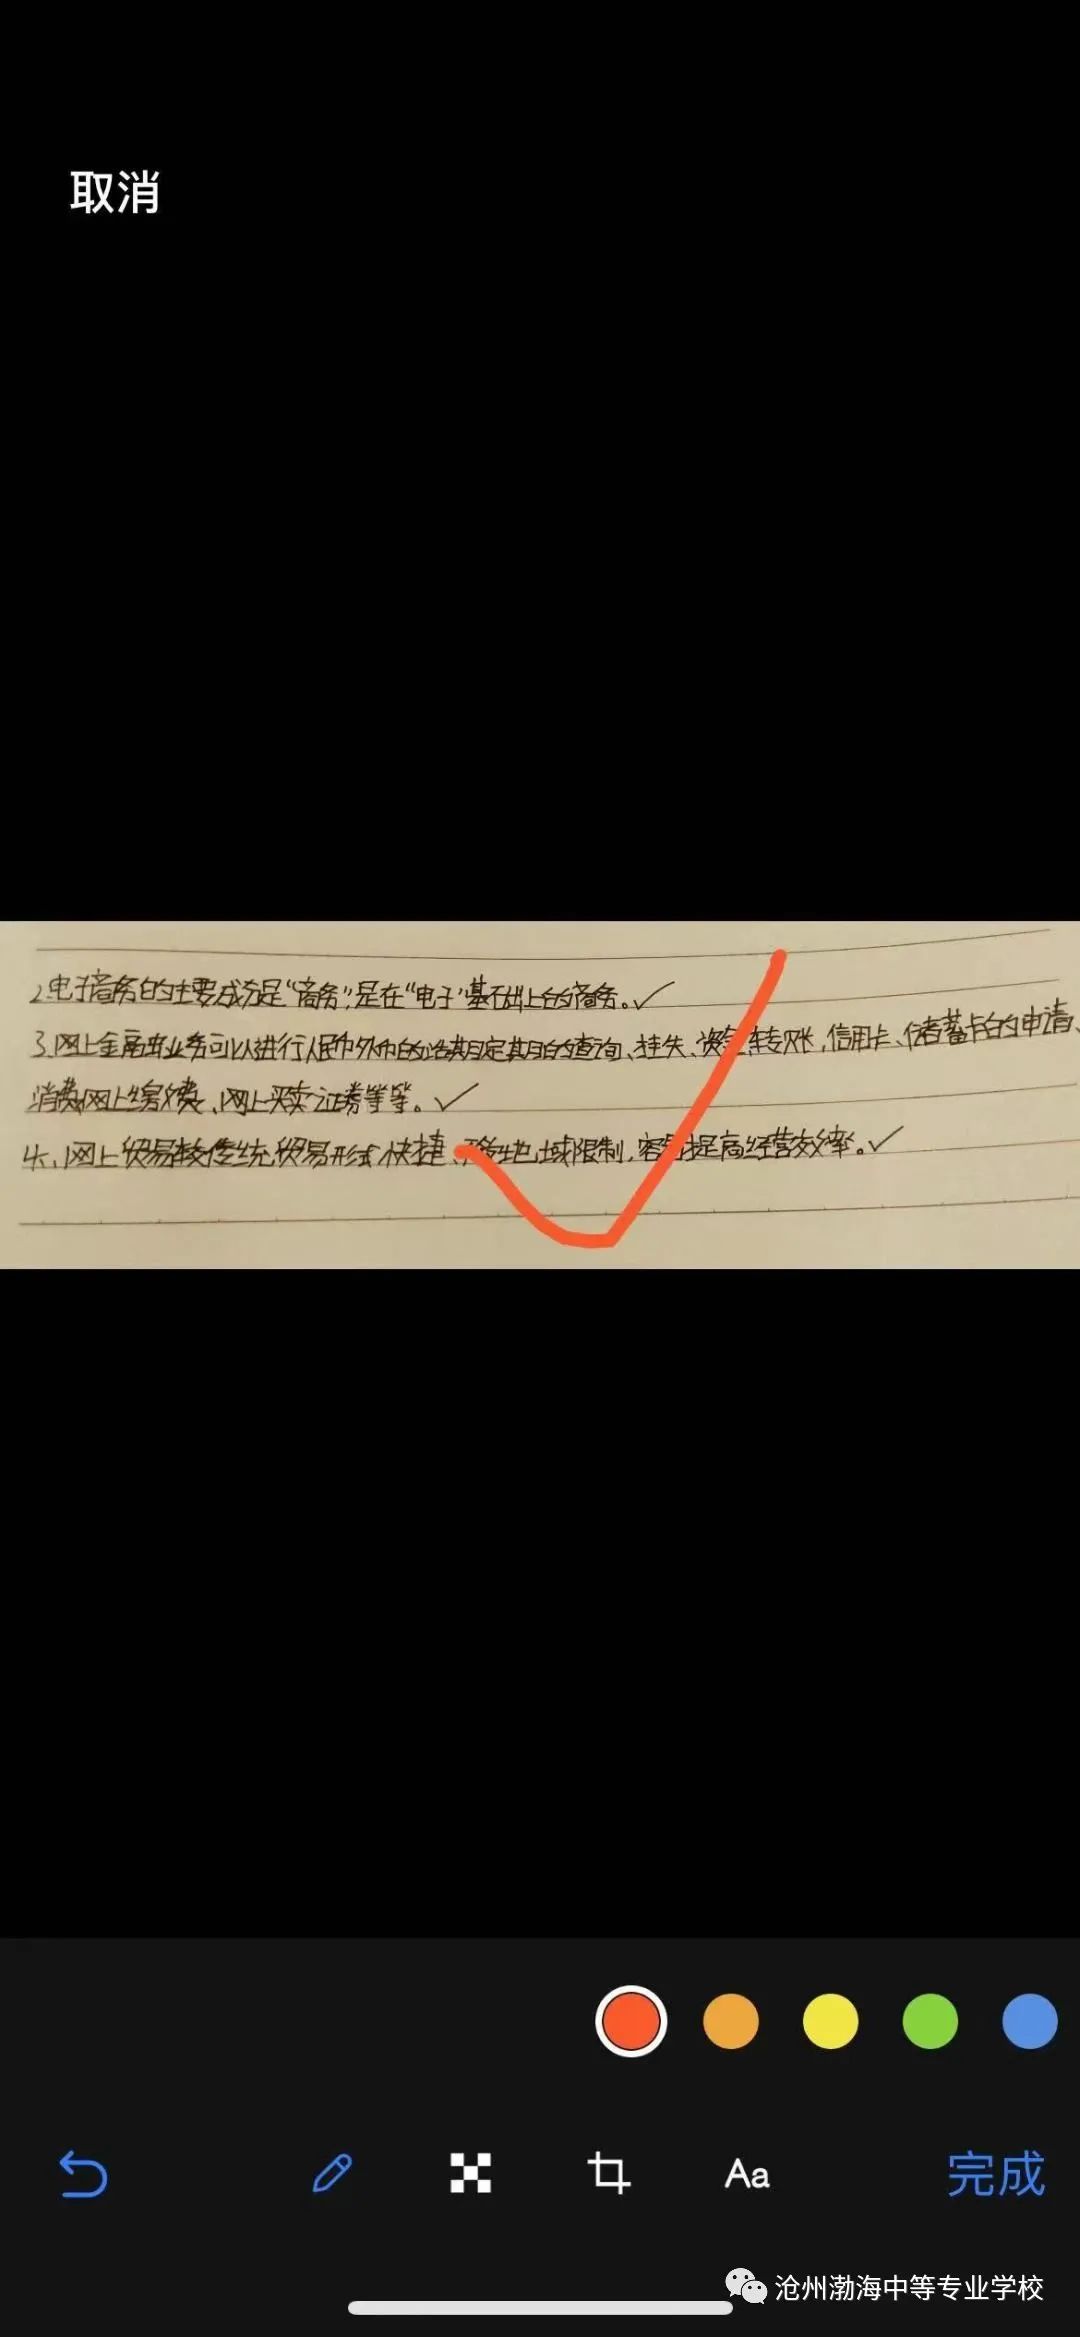 取消
2.电子商务的主要成分是“商务”,是在“电子”基础上的商务。✓
3.网上金融业务可以进行人民币外币的活期定期的查询、挂失、资金转账,信用卡、储蓄卡的申请、
消费,网上缴费、网上买卖证券等等。✓
4、网上贸易较传统贸易形式快捷、不受地域限制,容易提高经营效率。✓
Aa
完成
沧州渤海中等专业学校